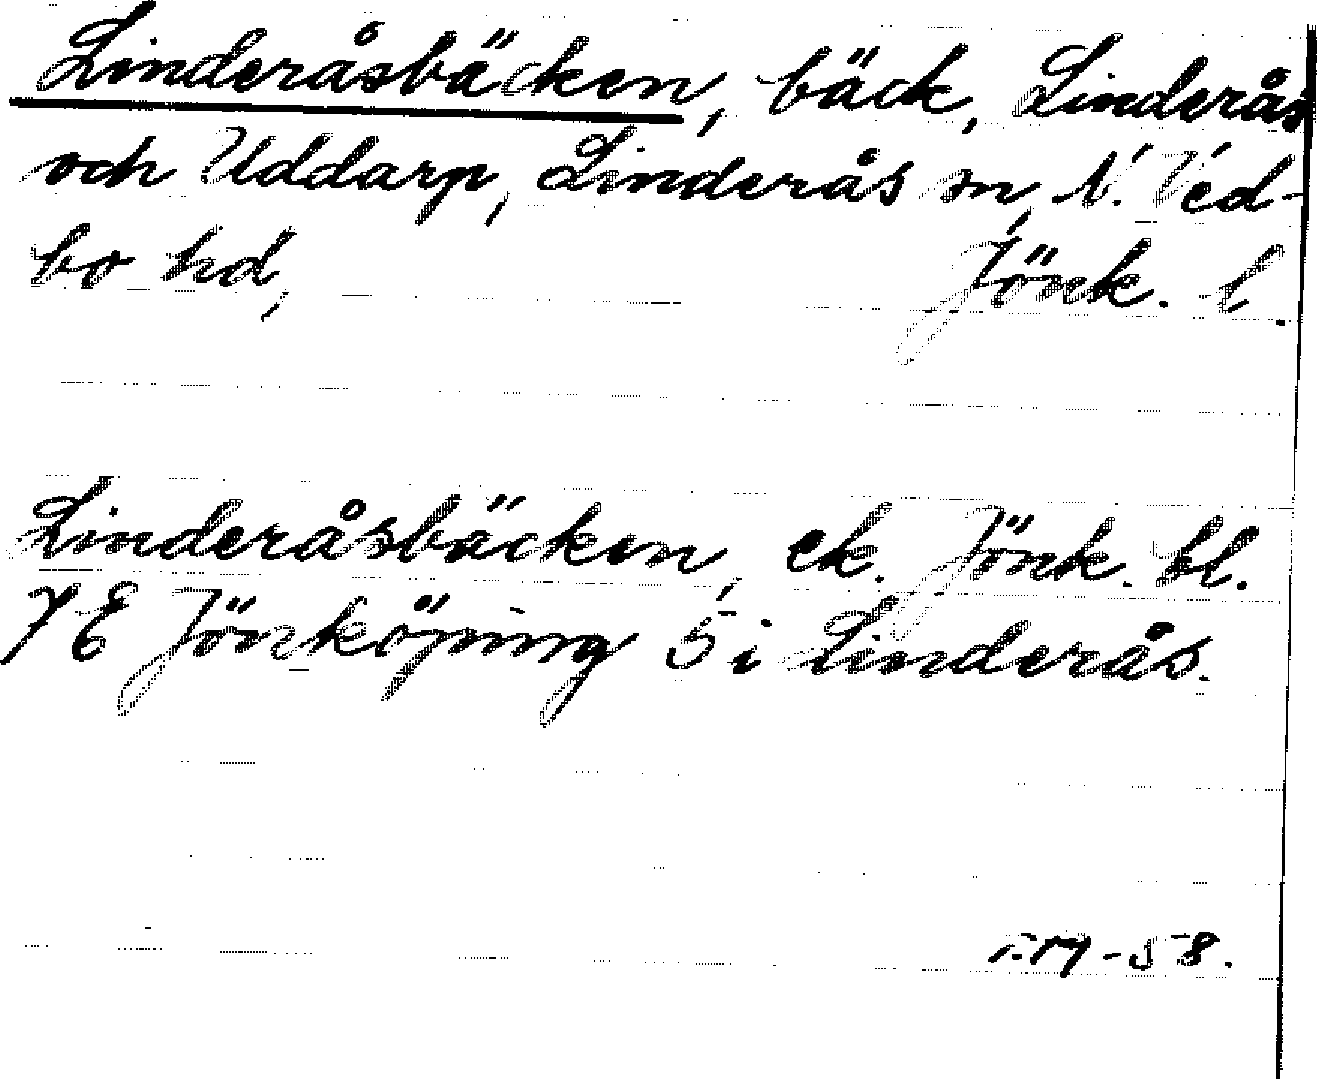 Linderåsbäcken, bäck, Linderås
och Uddarp, Linderås sn, N. Ved-
bo hd, Jönk. l.
Linderåsbäcken, ek. Jönk. bl.
7 E Jönköping 5 i Linderås.
-58.